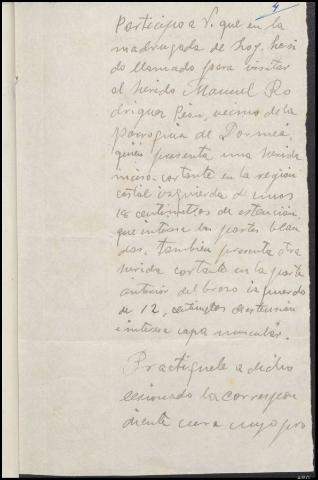 4
Participo a V. que en la
madrugada de hoy, he si
do llamado para visitar
al herido Manuel Ro
driguez, vecino de la
parroquia de Dormeá,
quien presenta una herida
inciso-cortante en la region
costal izquierda de unos
18 centimetros de estención,
que interesa las partes blan
das. tambien presenta otra
herida cortante en la parte
anterior del brazo izquierdo
de 12, centimetros de estensión
é interesa capa muscular.
Practiquele a dicho
lesionado la correspon
diente cura cuyo pro